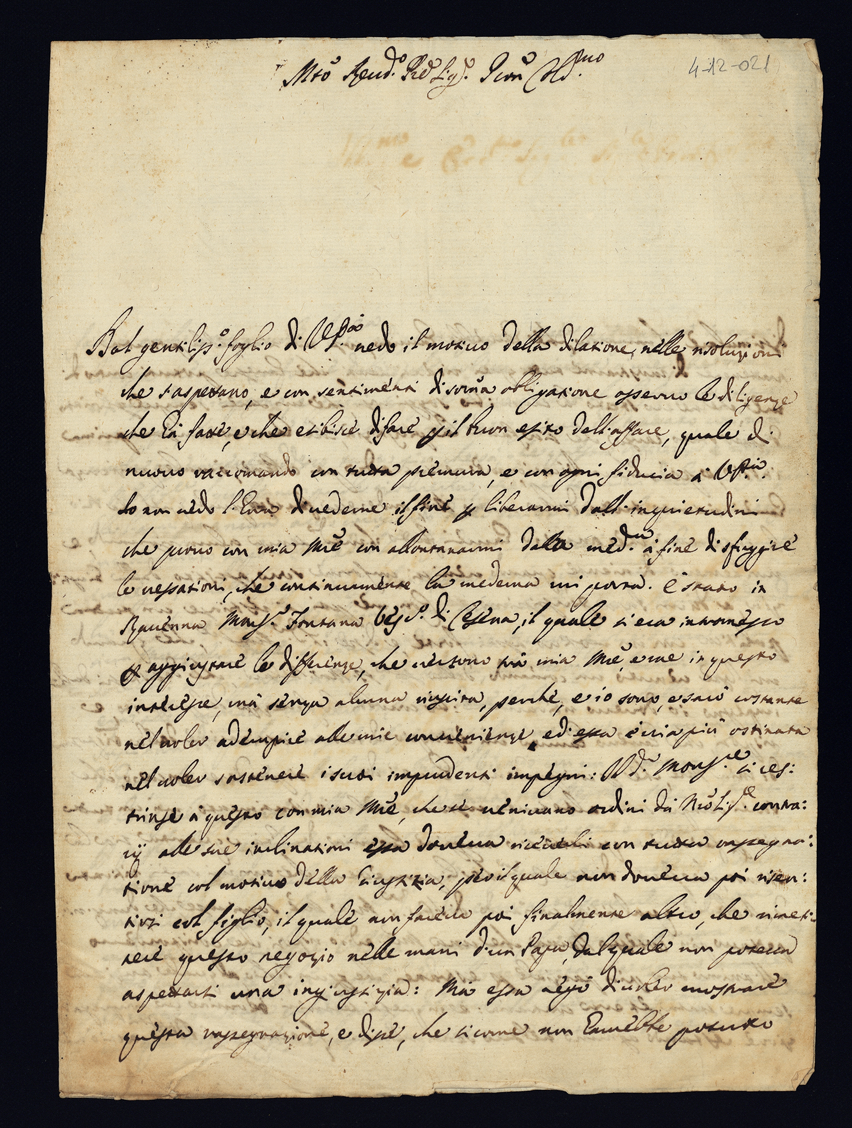 Mto Revdo Pre Sigr. Pron Colmo
4-12-021
Dal gentilissº. foglio di VS. vedo il motivo della dilatione, nelle risolutioni
che s'aspettano, e con sentimenti di soma obligatione osservo le diligenze
che Ella fatte, e che esibisce di fare p il buon esito dell'affare, quale di
nuovo raccomando con tutta premura, e con ogni fiducia à VS.
Io non vedo l'hora di vederne il fine p liberarmi dall'inquietudini
che provo con mia Mre con allontanarmi dalla medma. à fine di sfuggire
le vessationi, che continuamente la medema mi porta. È stato in
Ravenna Monsr. Fontana Vescº. di Cesena, il quale si era intromesso
p aggiustare le differenze, che vertono trà mia Mre, e me in questo
interesse, mà senza alcuna riuscita, perche, e io sono, e sarò costante
nel voler adempire alle mie convenienze, ed essa è via più ostinata
nel voler sostenere i suoi impudenti impegni: Dº. Monsre si res:
trinse à questo con mia Mre, che se venivano ordini da Nro Sigre contra:
rij alle sue inclinationi essa doveva riceverli con tutta rassegna:
tione col motivo della Giustizia, p il quale non doveva poi risen:
tirsi col figlio, il quale non faceva poi finalmente altro, che rimet:
tere questo negozio nelle mani d'un Papa, dal quale non poteva
aspettarsi una ingiustizia: Mà essa negò di voler mostrare
questa rassegnazione, e disse, che sicome non haverebbe potuto